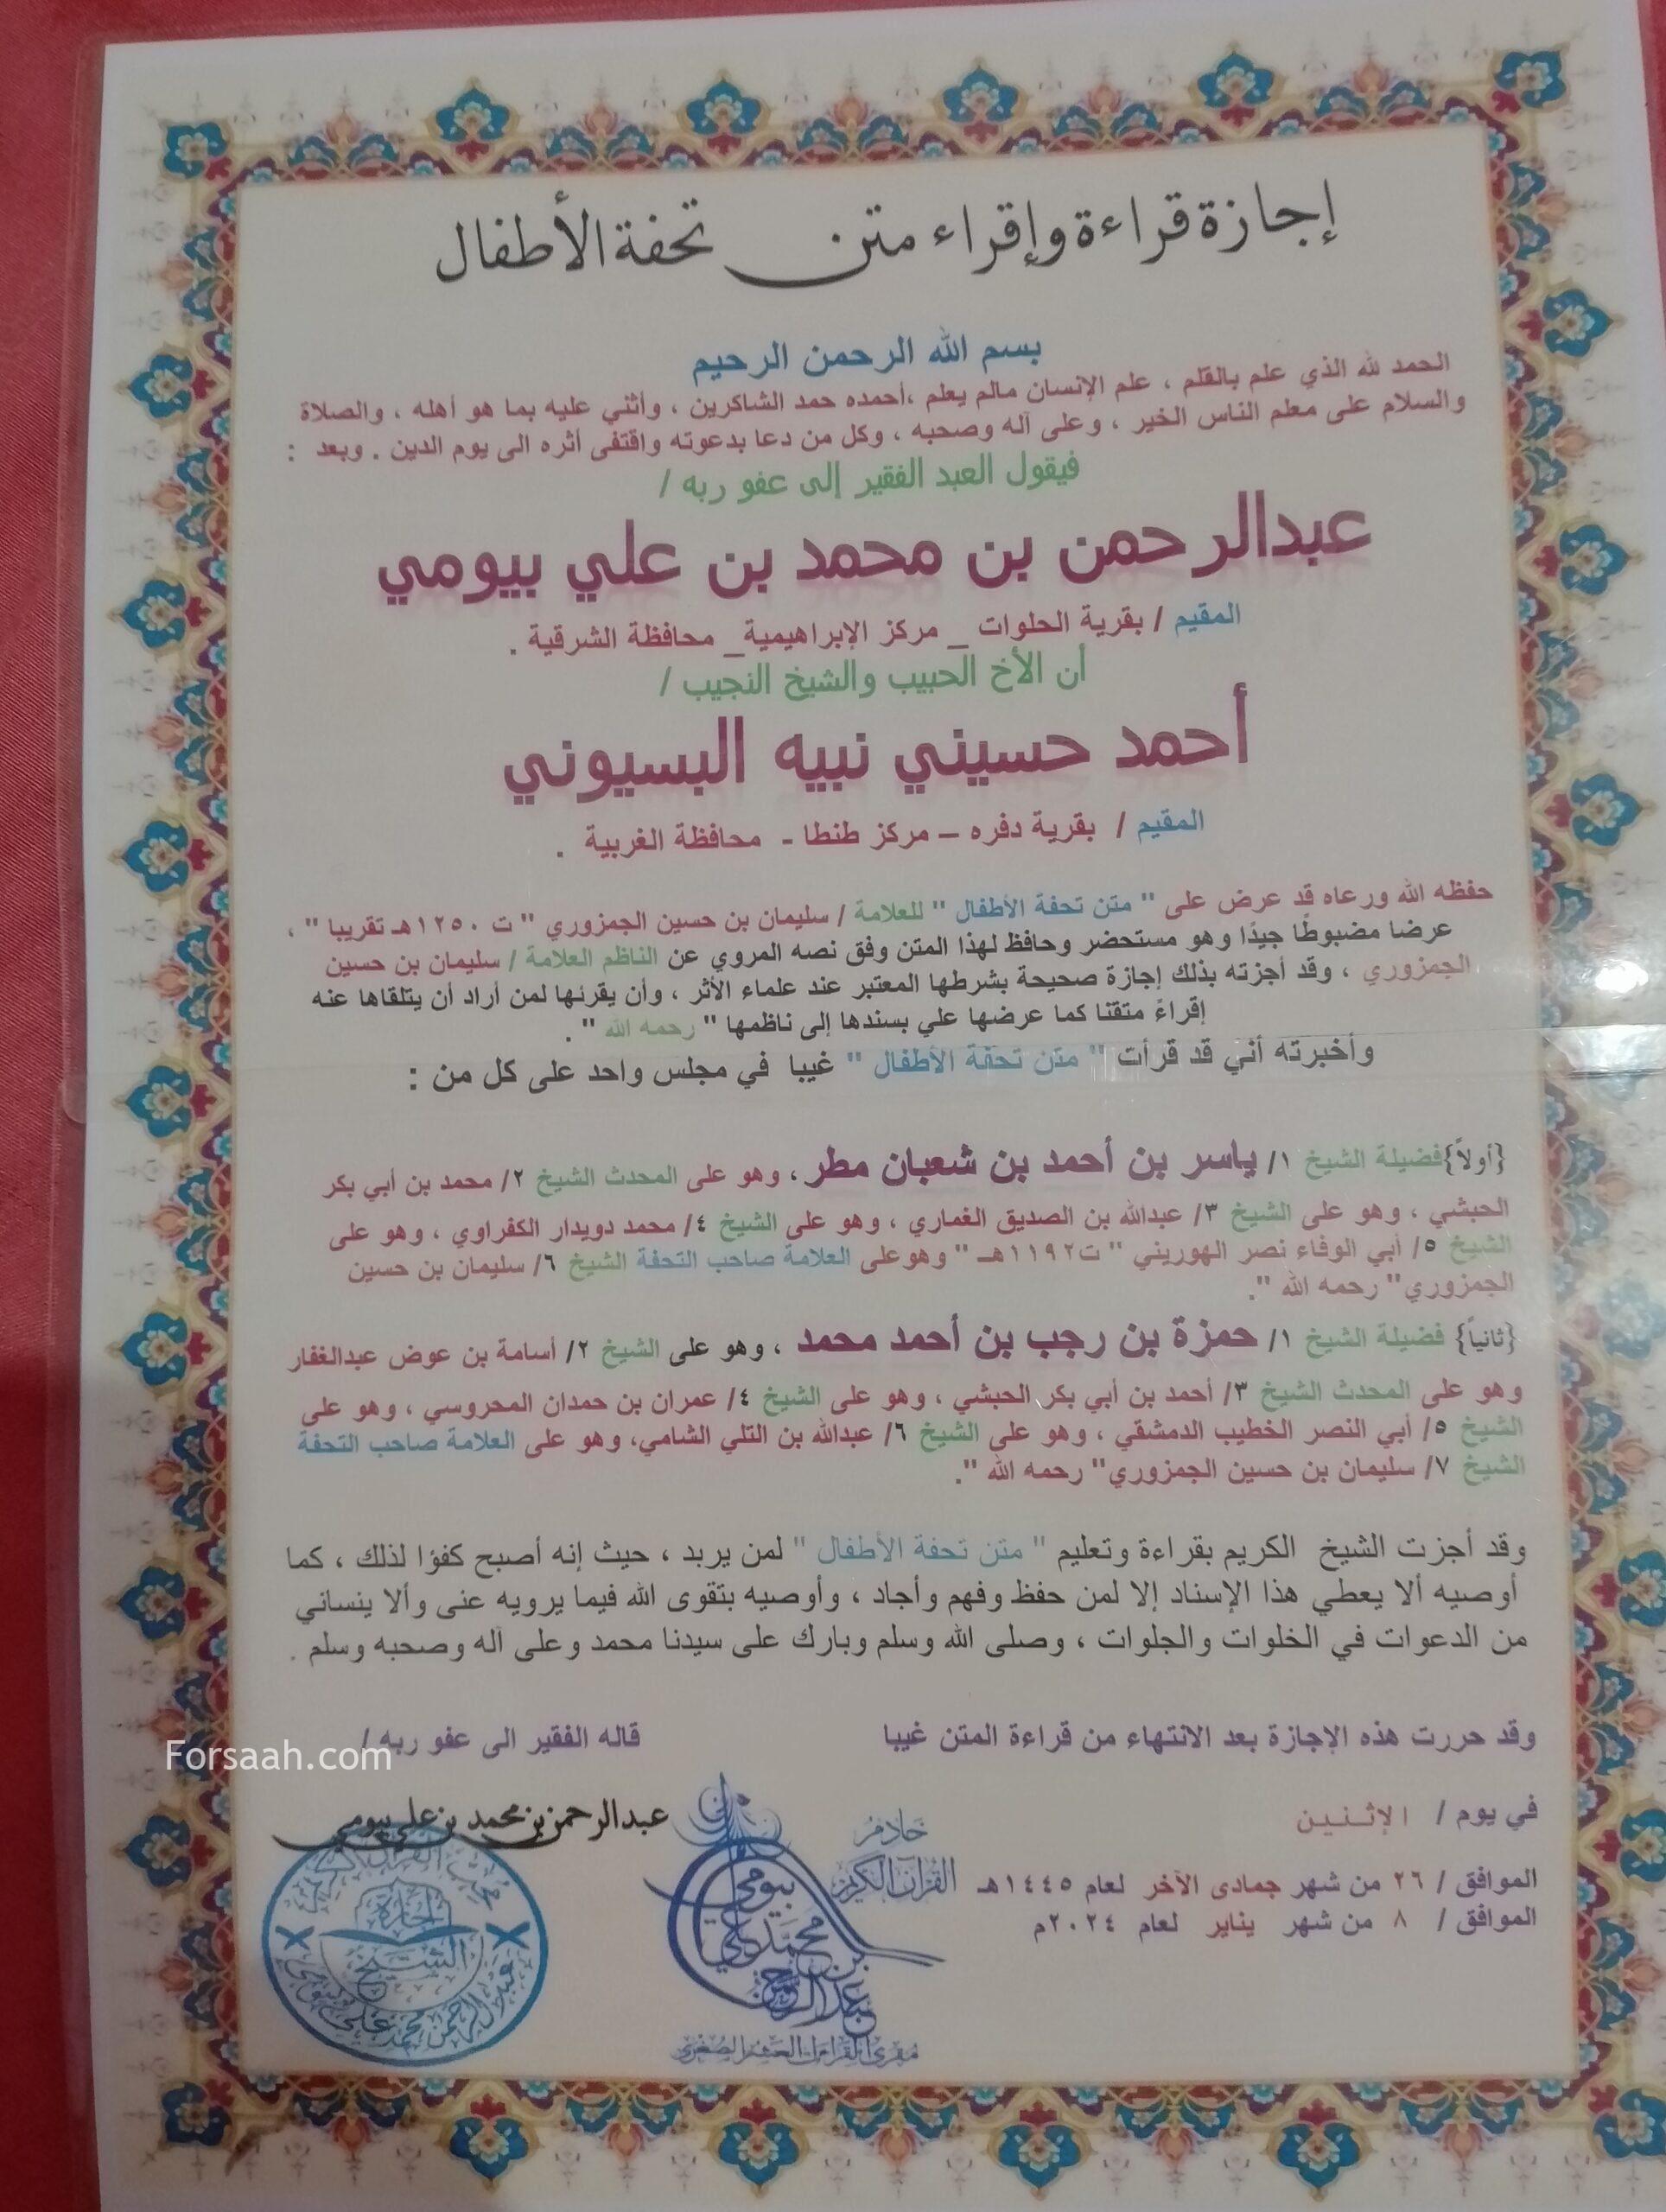 إجازة قراءة وإقراء متن تحفة الأطفال
بسم الله الرحمن الرحيم
الحمد لله الذي علم بالقلم ، علم الإنسان مالم يعلم ،أحمده حمد الشاكرين ، وأثني عليه بما هو أهله ، والصلاة
والسلام على معلم الناس الخير ، وعلى آله وصحبه ، وكل من دعا بدعوته واقتفى أثره الى يوم الدين . وبعد :
فيقول العبد الفقير إلى عفو ربه /
عبدالرحمن بن محمد بن علي بيومي
المقيم / بقرية الحلوات _ مركز الإبراهيمية_ محافظة الشرقية .
أن الأخ الحبيب والشيخ النجيب /
أحمد حسيني نبيه البسيوني
المقيم / بقرية دفره – مركز طنطا - محافظة الغربية .
حفظه الله ورعاه قد عرض على " متن تحفة الأطفال " للعلامة / سليمان بن حسين الجمزوري " ت ١٢٥٠هـ تقريبا " ،
عرضا مضبوطًا جيدًا وهو مستحضر وحافظ لهذا المتن وفق نصه المروي عن الناظم العلامة / سليمان بن حسين
الجمزوري ، وقد أجزته بذلك إجازة صحيحة بشرطها المعتبر عند علماء الأثر ، وأن يقرئها لمن أراد أن يتلقاها عنه
إقراءً متقنا كما عرضها علي بسندها إلى ناظمها " رحمه الله ".
وأخبرته أني قد قرأت " متن تحفة الأطفال " غيبا في مجلس واحد على كل من :
{أولاً}فضيلة الشيخ ١/ ياسر بن أحمد بن شعبان مطر ، وهو على المحدث الشيخ ٢/ محمد بن أبي بكر
الحبشي ، وهو على الشيخ ٣/ عبدالله بن الصديق الغماري ، وهو على الشيخ ٤/ محمد دويدار الكفراوي ، وهو على
الشيخ ٥/ أبي الوفاء نصر الهوريني " ت١١٩٢هـ " وهوعلى العلامة صاحب التحفة الشيخ ٦/ سليمان بن حسين
الجمزوري" رحمه الله ".
{ثانياً} فضيلة الشيخ ١/ حمزة بن رجب بن أحمد محمد ، وهو على الشيخ ٢/ أسامة بن عوض عبدالغفار
وهو على المحدث الشيخ ٣/ أحمد بن أبي بكر الحبشي ، وهو على الشيخ ٤/ عمران بن حمدان المحروسي ، وهو على
الشيخ ٥/ أبي النصر الخطيب الدمشقي ، وهو على الشيخ ٦/ عبدالله بن التلي الشامي، وهو على العلامة صاحب التحفة
الشيخ ٧/ سليمان بن حسين الجمزوري" رحمه الله ".
وقد أجزت الشيخ الكريم بقراءة وتعليم " متن تحفة الأطفال " لمن يريد ، حيث إنه أصبح كفؤا لذلك ، كما
أوصيه ألا يعطي هذا الإسناد إلا لمن حفظ وفهم وأجاد ، وأوصيه بتقوى الله فيما يرويه عنى وألا ينساني
من الدعوات في الخلوات والجلوات ، وصلى الله وسلم وبارك على سيدنا محمد وعلى آله وصحبه وسلم .
وقد حررت هذه الإجازة بعد الانتهاء من قراءة المتن غيبا
قاله الفقير الى عفو ربه /
Forsaah.com
في يوم / الإثنين
عبدالرحمن بن محمد بن علي بيومي
الموافق / ٢٦ من شهر جمادى الآخر لعام ١٤٤٥هـ
الموافق / ٨ من شهر يناير لعام ٢٠٢٤م
خادم
القرآن الكريم
بيومي
محمد علي
بن
عبدالرحمن
مقرئ القراءات العشر الصغرى
إجازة
الشيخ
عبدالرحمن محمد علي بيومي